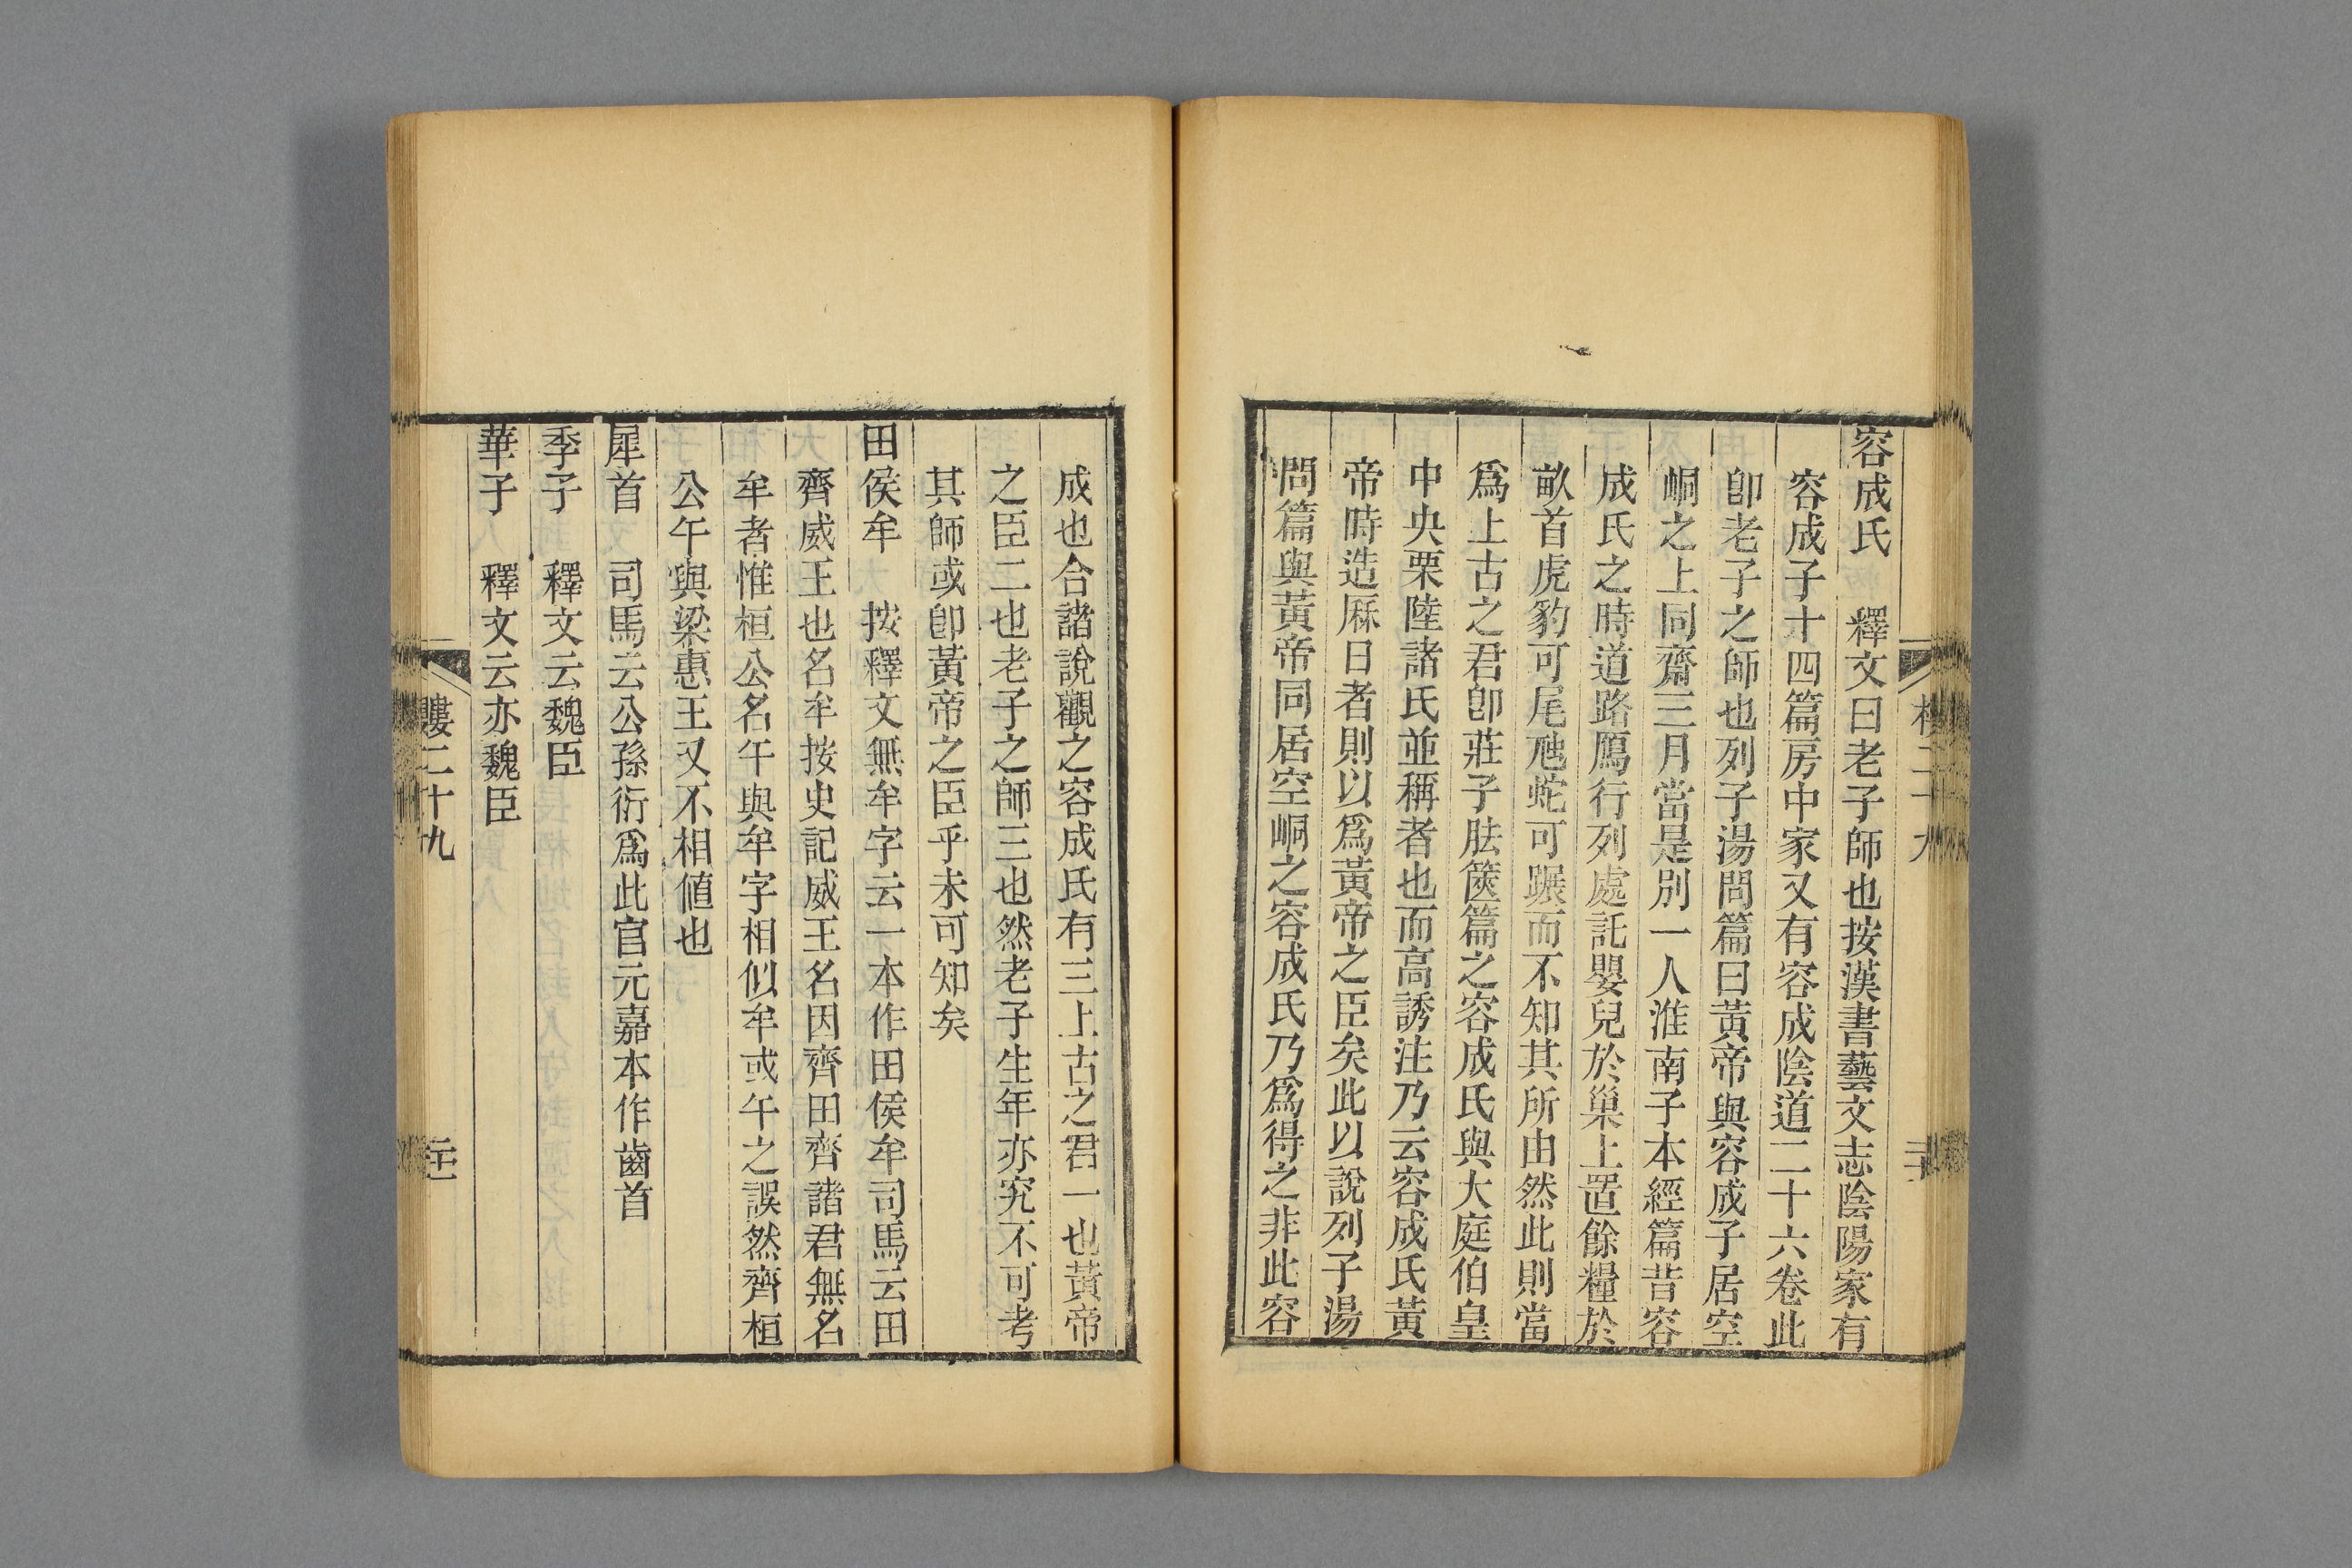 容成氏　釋文曰老子師也按漢書藝文志陰陽家有
容成子十四篇房中家又有容成陰道二十六卷此
卽老子之師也列子湯問篇曰黃帝與容成子居空
峒之上同齋三月當是別一人淮南子本經篇昔容
成氏之時道路鴈行列處託嬰兒於巢上置餘糧於
畝首虎豹可尾虺蛇可蹍而不知其所由然此則當
爲上古之君卽莊子胠篋篇之容成氏與大庭伯皇
中央栗陸諸氏並稱者也而高誘注乃云容成氏黃
帝時造厤日者則以爲黃帝之臣矣此以說列子湯
問篇與黃帝同居空峒之容成氏乃爲得之非此容
成也合諸說觀之容成氏有三上古之君一也黃帝
之臣二也老子之師三也然老子生年亦究不可考
其師或卽黃帝之臣乎未可知矣
田侯牟　按釋文無牟字云一本作田侯牟司馬云田
齊威王也名牟按史記威王名因齊田齊諸君無名
牟者惟桓公名午與牟字相似牟或午之誤然齊桓
公午與梁惠王又不相値也
犀首　司馬云公孫衍爲此官元嘉本作齒首
季子　釋文云魏臣
華子　釋文云亦魏臣
廔二十九